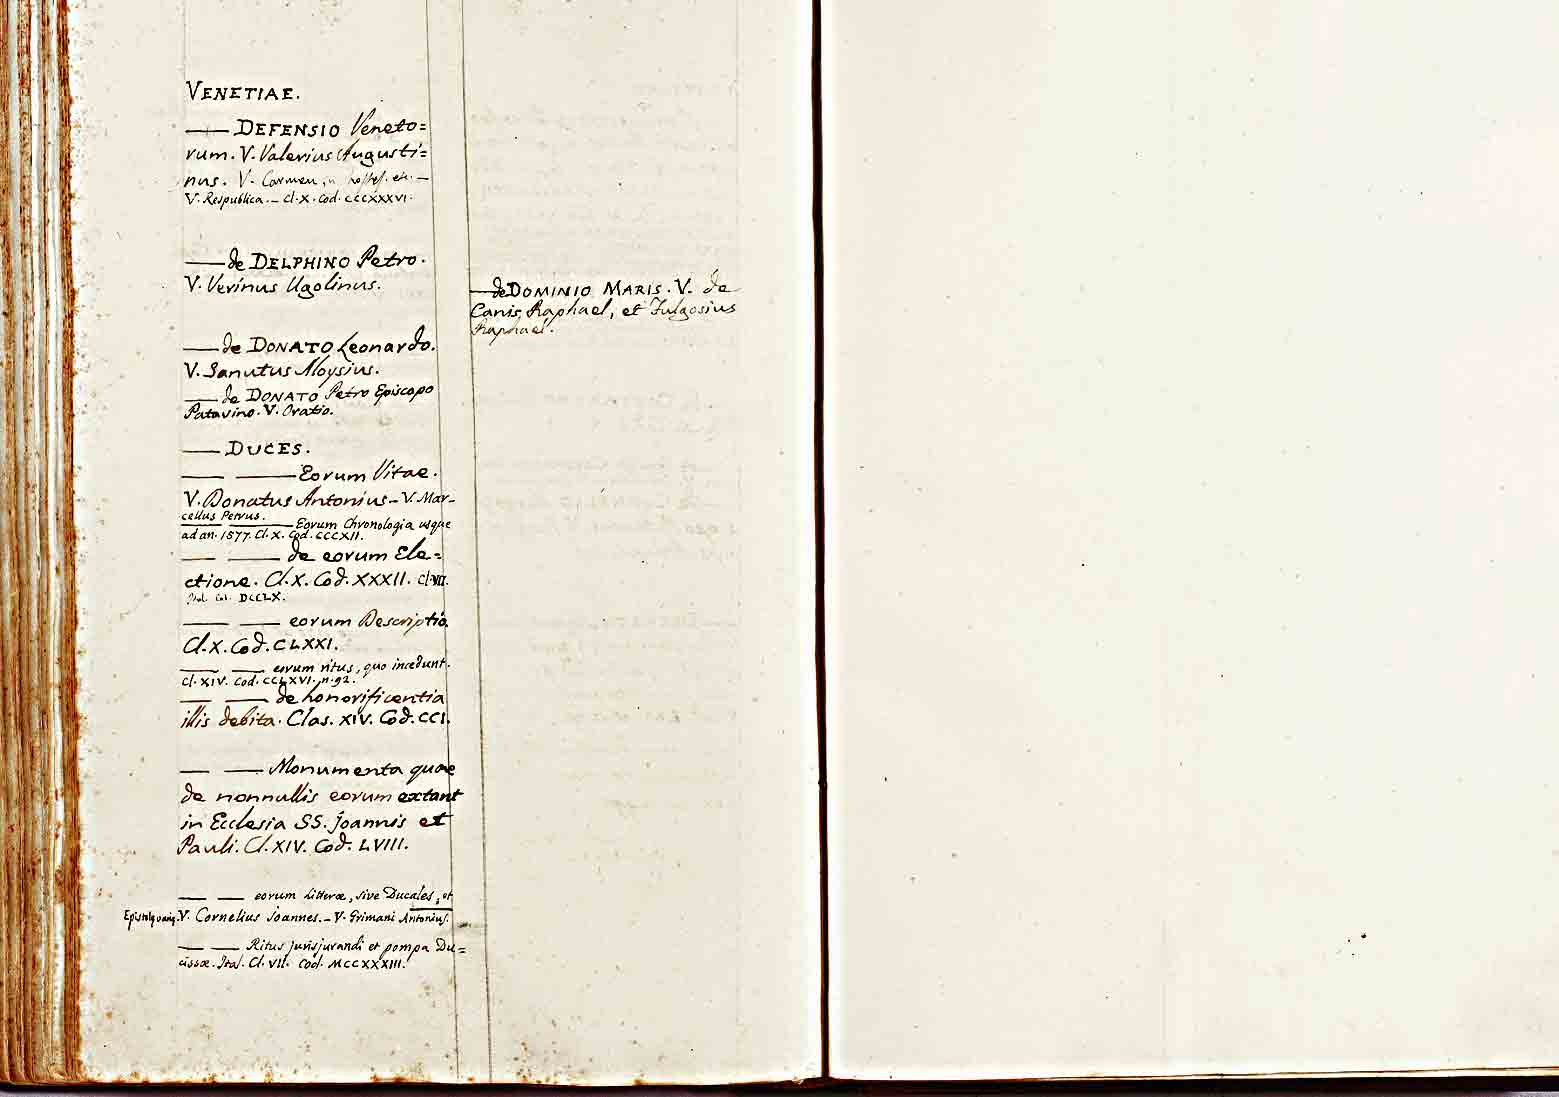 VENETIAE.
—— DEFENSIO Veneto=
rum. V. Valerius Augusti=
nus. V. Carmen in hostes. etc. —
V. Respublica. — Cl. X. Cod. CCCXXXVI.
—— de DELPHINO Petro.
V. Verinus Ugolinus.
—— de DONATO Leonardo.
V. Sanutus Aloysius.
—— de DONATO Petro Episcopo
Patavino. V. Oratio.
—— DUCES.
—— —— Eorum Vitae.
V. Donatus Antonius — V. Mar-
cellus Petrus.
—— —— Eorum Chronologia usque
ad an. 1577. Cl. X. Cod. CCCXII.
—— —— de eorum Ele=
ctione. Cl. X. Cod. XXXII. Cl. VII.
Ital. Cod. DCCLX.
—— —— eorum Descriptio
Cl. X. Cod. CLXXI.
—— —— eorum ritus, quo incedunt.
Cl. XIV. Cod. CCLXVI. n. 92.
—— —— de honorificentia
illis debita. Clas. XIV. Cod. CCI.
—— —— Monumenta quae
de nonnullis eorum extant
in Ecclesia SS. Joannis et
Pauli. Cl. XIV. Cod. LVIII.
—— —— eorum Litterae, sive Ducales, et
V. Cornelius Joannes. — V. Grimani Antonius.
—— —— Ritus jurisjurandi et pompa Du=
cissae. Ital. Cl. VII. Cod. MCCXXXIII.
—— de DOMINIO MARIS. V. de
Canis Raphael, et Fulgosius
Raphael.